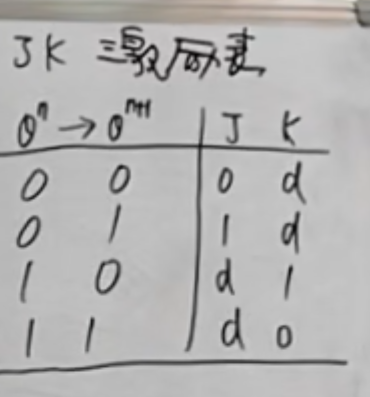 JK 激励表
Qⁿ → Qⁿ⁺¹ J K
0 0 0 d
0 1 1 d
1 0 d 1
1 1 d 0